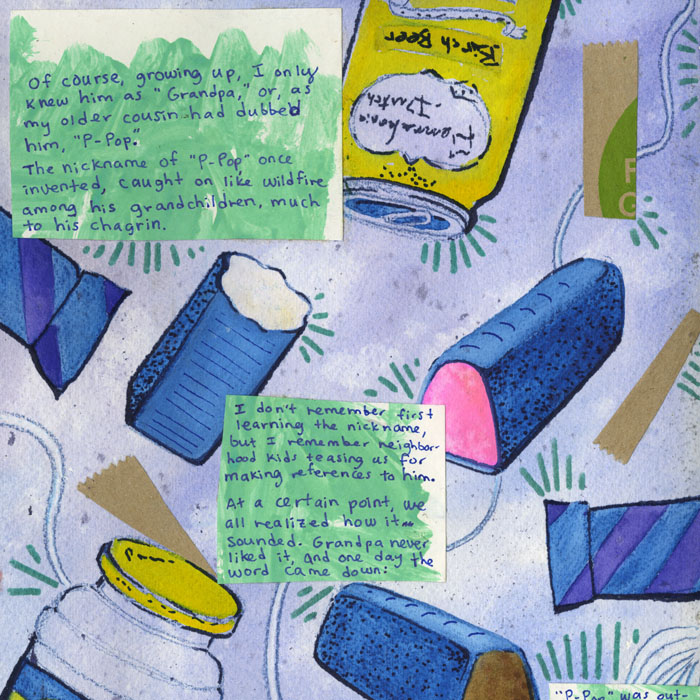 Of course, growing up, I only
knew him as "Grandpa," or, as
my older cousin had dubbed
him, "P-Pop."
The nickname of "P-Pop" once
invented, caught on like wildfire
among his grandchildren, much
to his chagrin.
Birch Beer
Pennsylvania
Dutch
I don't remember first
learning the nickname,
but I remember neighbor-
hood kids teasing us for
making references to him.
At a certain point, we
all realized how it
sounded. Grandpa never
liked it, and one day the
word came down:
"P-Pop" was out-